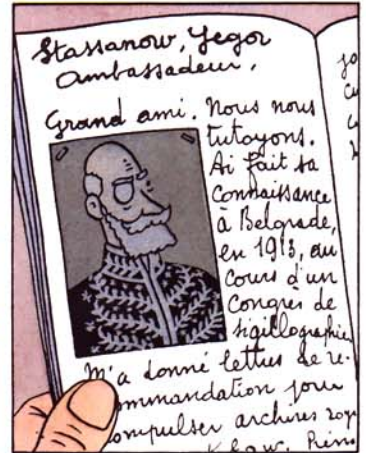 Stassanow, Yegor
Ambassadeur,
Grand ami. Nous nous
tutoyons.
Ai fait sa
connaissance
à Belgrade,
en 1913, au
cours d'un
Congrès de
sigillographie
M'a donné lettres de re-
ommandation pour
ompulser archives roy
Klow.